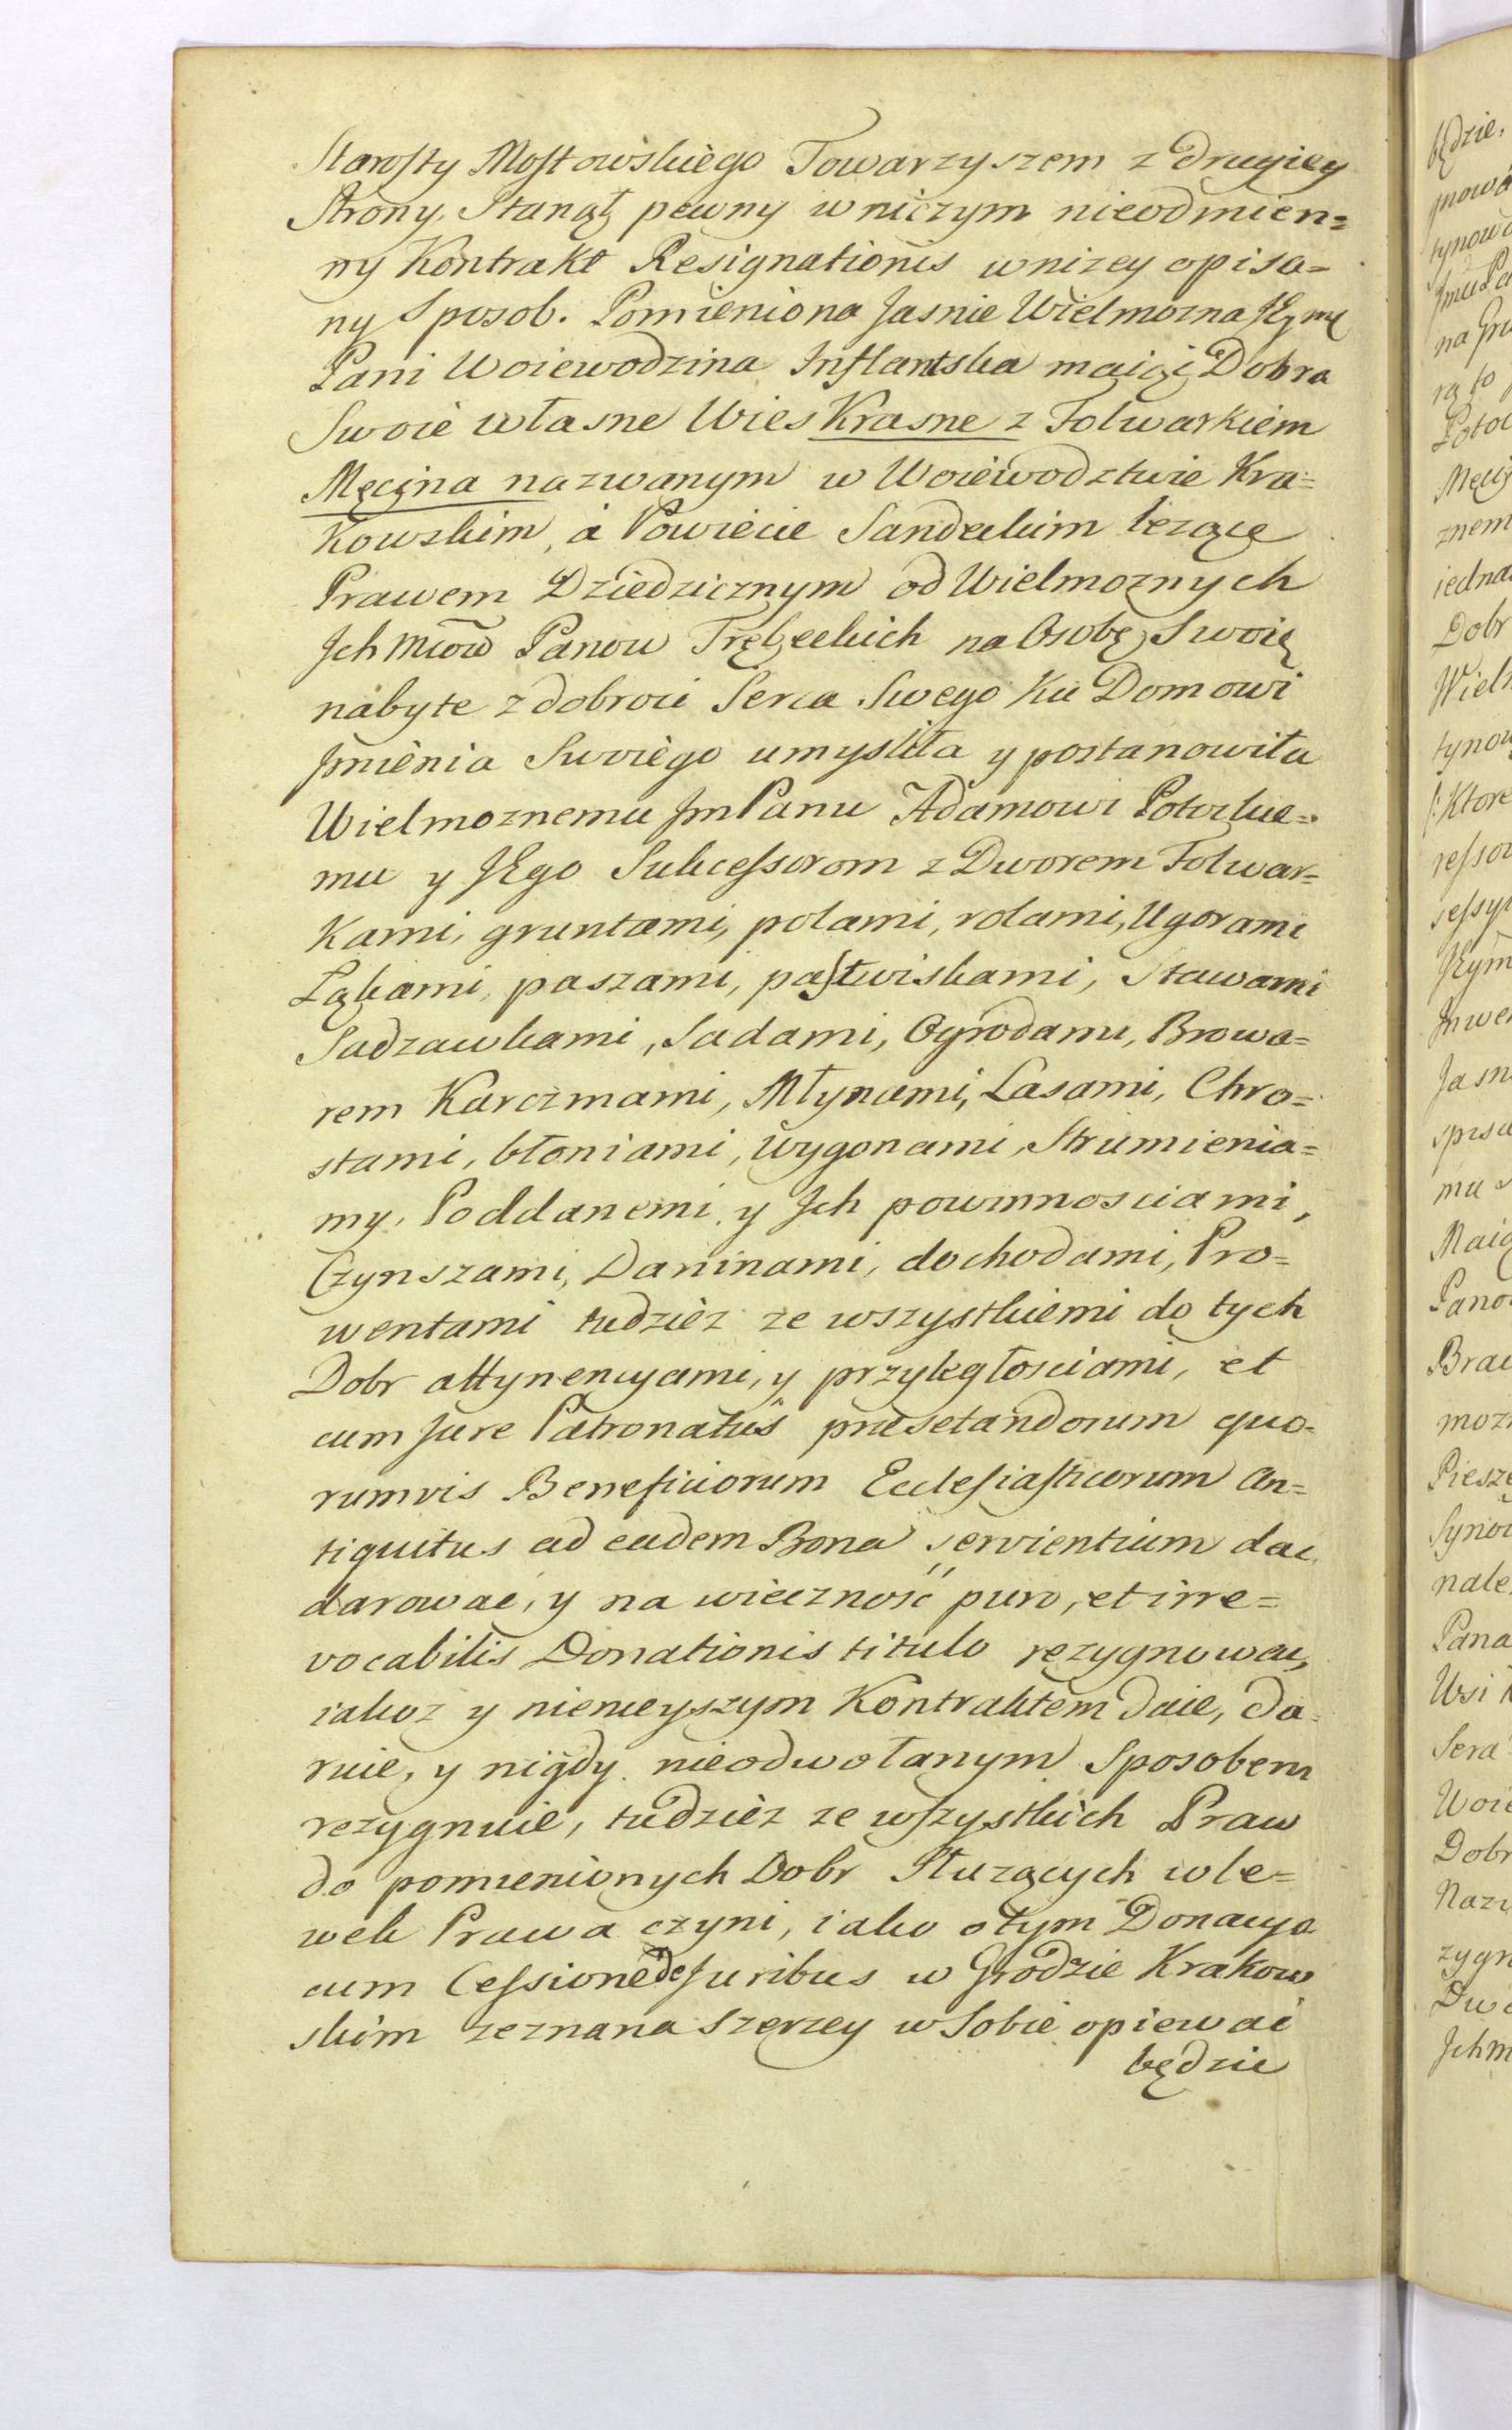 Starosty Mostowskiego Towarzyszem z drugiey
Strony. Stanął pewny w niczym nieodmien=
ny Kontrakt Resignationis w nizey opisa=
ny Sposob. Pomieniona Jasnie Wielmozna JEymć
Pani Woiewodzina Inflantska maiąc Dobra
Swoie własne Wies Krasne z Folwarkiem
Męcina nazwanym w Woiewodztwie Kra=
kowskim, a Powiecie Sandeckim lezące
Prawem Dziedzicznym od Wielmoznych
Ich Mciow Panow Trębeckich na Osobę Swoię
nabyte z dobroci Serca Swego ku Domowi
Jmienia Swoiego umysliła y postanowiła
Wielmoznemu Jm Panu Adamowi Potockie=
mu y JEgo Sukcessorom z Dworem Folwar=
kami, gruntami, polami, rolami, Ugorami
Ląkami, paszami, pastwiskami, Stawami
Sadzawkami, Sadami, Ogrodami, Browa=
rem Karczmami, Młynami, Lasami, Chro=
stami, błoniami, wygonami, Strumienia=
my, Poddanemi y Ich powinnosciami,
Czynszami, Daninami, dochodami, Pro=
wentami tudziez ze wszystkiemi do tych
Dobr attynencyami, y przyległosciami, et
cum Jure Patronatus presetandorum quo=
rumvis Beneficiorum Ecclesiasticorum an=
tiquitus ad eadem Bona servientium dac
darowac, y na wieczność puro, et irre=
vocabilis Donationis titulo rezygnowac,
iakoz y nienieyszym Kontraktem daie, da=
ruie, y nigdy nieodwołanym Sposobem
rezygnuie, tudziez ze wszystkich Praw
do pomienionych Dobr Słuzących wle=
wek Prawa czyni, iako o tym Donacya
cum Cessione de Juribus w Grodzie Krakow
skim zeznana szerzey w Sobie opiewać
będzie